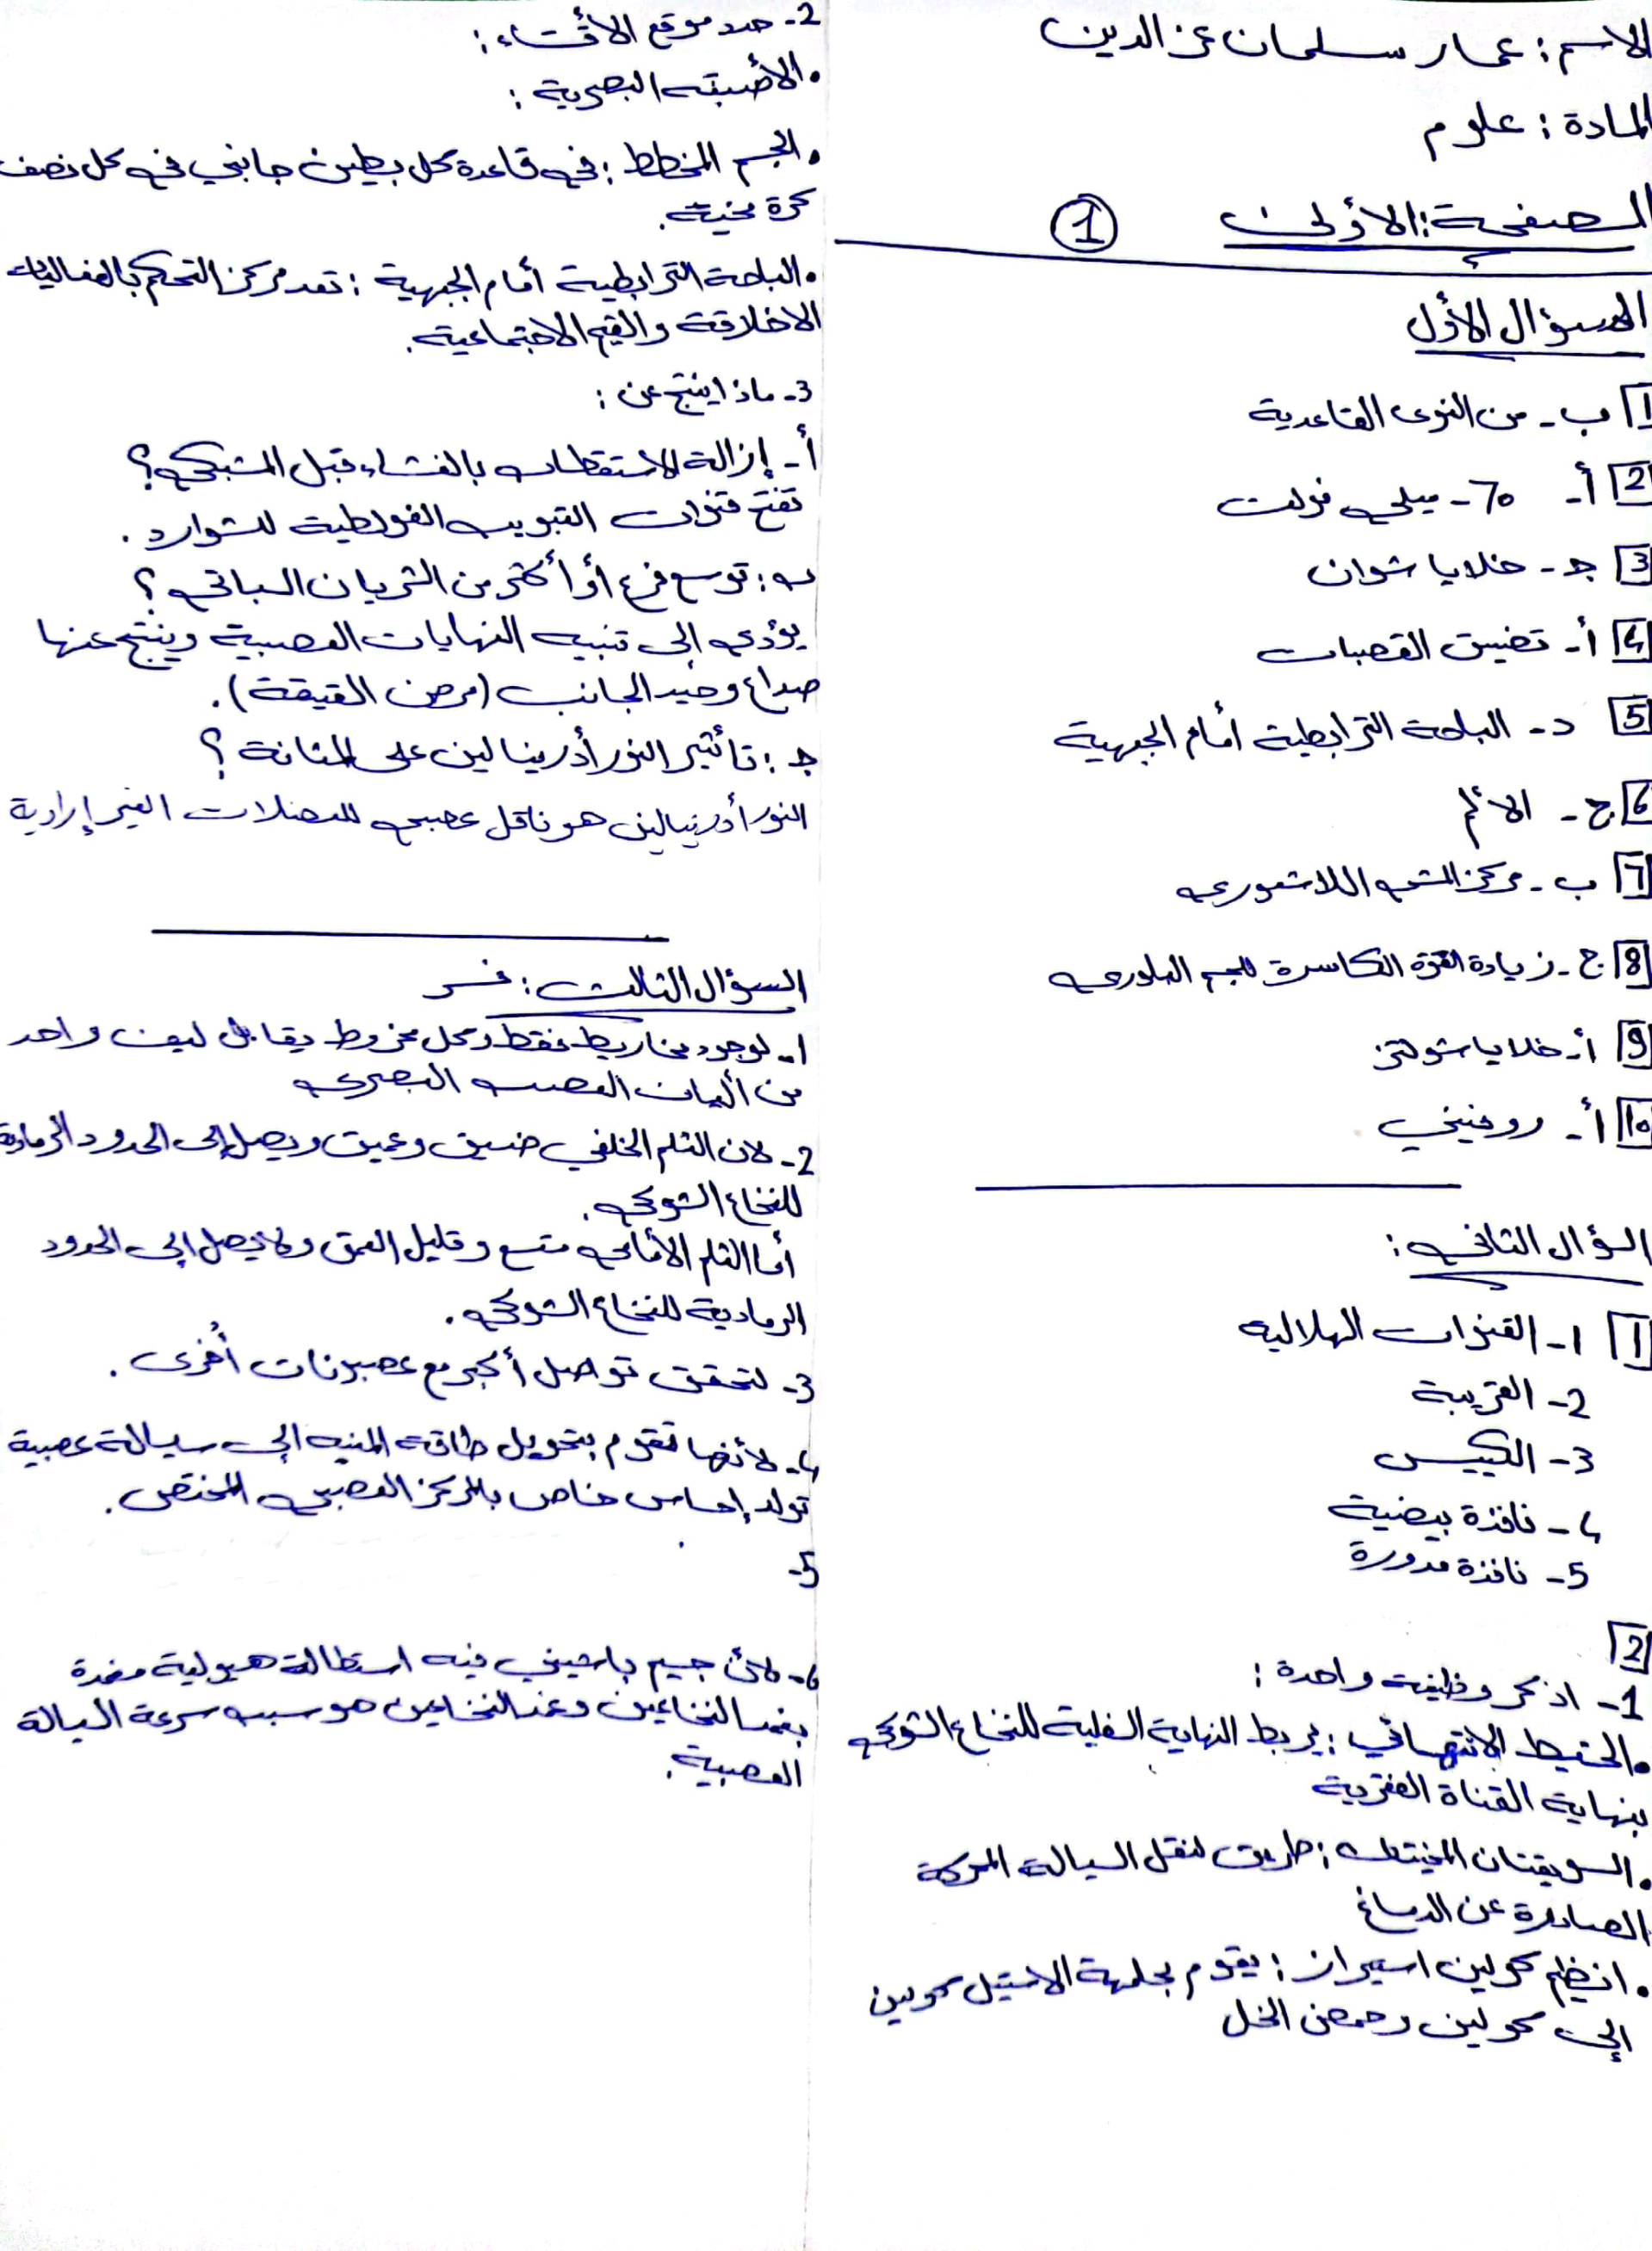 الاسم : عمار سلمان عز الدين
المادة : علوم
الصفحة : الأولى 1
السؤال الأول
1 ب - من النوى القاعدية
2 أ - 70 - ميلي فولت
3 جـ - خلايا شوان
4 أ - تضيق القصبات
5 د - الباحة الترابطية أمام الجبهية
6 ج - الألم
7 ب - مركز الشم اللاشعوري
8 ج - زيادة القوة الكاسرة للجسم البلوري
9 أ - خلايا شولتز
10 أ - روفيني
السؤال الثاني :
1 1 - القنوات الهلالية
2 - القريبة
3 - الكييس
4 - نافذة بيضية
5 - نافذة مدورة
2
1 - اذكر وظيفة واحدة :
• الخيط الانتهائي : يربط النهاية السفلية للنخاع الشوكي
بنهاية القناة الفقرية
• السويقتان المخيتان : طريق لنقل السيالة المحركة
الصادرة عن الدماغ
• انظيم كولين استيراز : يقوم بحلمهة الاستيل كولين
إلى كولين وحمض الخل
2 - حدد موقع الأشياء :
• الأخبية البصرية :
• الجسم المخطط : في قاعدة كل بطين جانبي في كل نصف
كرة مخية .
• الباحة الترابطية أمام الجبهية : تعد مركز التحكم بالفعاليات
الاخلاقية والقيم الاجتماعية .
3 - ماذا ينتج عن :
أ - إزالة الاستقطاب بالغشاء قبل المشبكي ؟
تفتح قنوات التبويب الفولطية للشوارد .
ب : توسع فرع أو أكثر من الشريان السباتي ؟
يؤدي إلى تنبيه النهايات العصبية وينتج عنها
صداع وحيد الجانب ( مرض الشقيقة ) .
جـ : تأثير النور أدرينالين على المثانة ؟
النور أدرينالين هو ناقل عصبي للعضلات الغير إرادية
السؤال الثالث : فسر
1 - لوجود مخاريط فقط وكل مخروط يقابل ليف واحد
من ألياف العصب البصري
2 - لان الثلم الخلفي ضيق وعميق ويصل إلى الحدود الرمادية
للنخاع الشوكي .
أما الثلم الأمامي متسع وقليل العمق ولا يصل إلى الحدود
الرمادية للنخاع الشوكي .
3 - لتحقق تواصل أكبر مع عصبونات أخرى .
4 - لأنها تقوم بتحويل طاقة المنبه إلى سيالة عصبية
تولد إحساس خاص بالمركز العصبي المختص .
5 -
6 - لأن جسيم باشيني فيه استطالة هيولية مغمدة
بغمد النخاعين وغمد النخاعين هو سبب سرعة السيالة
العصبية .